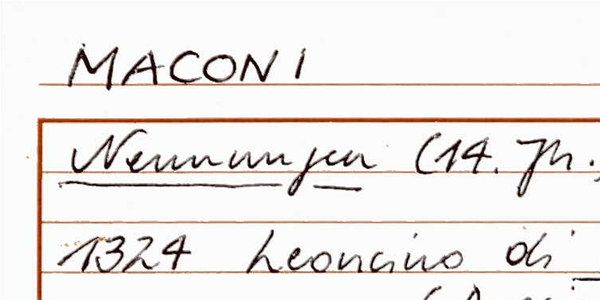 MACONI
Nennungen (14. Jh.
1324 Leoncino di